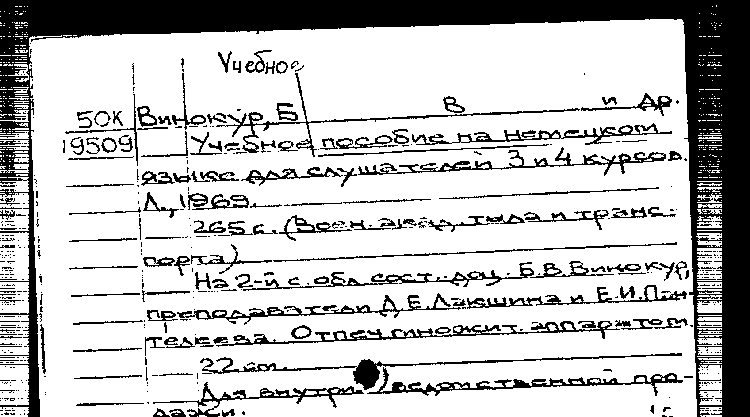 Учебное
50К Винокур, Б В и др.
19509 Учебное пособие на немецком
языке для слушателей 3 и 4 курсов.
Л., 1969.
265 с. (Воен. акад. тыла и транс-
порта)
На 2-й с. обл. сост.: доц. Б.В. Винокур,
преподаватели Д.Е. Лакшина и Е.И. Пан-
телеева. Отпеч. множит. аппаратом
22 см.
Для внутриведомственной про-
дажи.